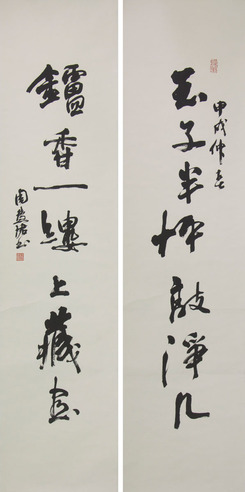 玉子半枰敲淨几
甲戌仲春
鑪香一縷上藏書
周慧珺书